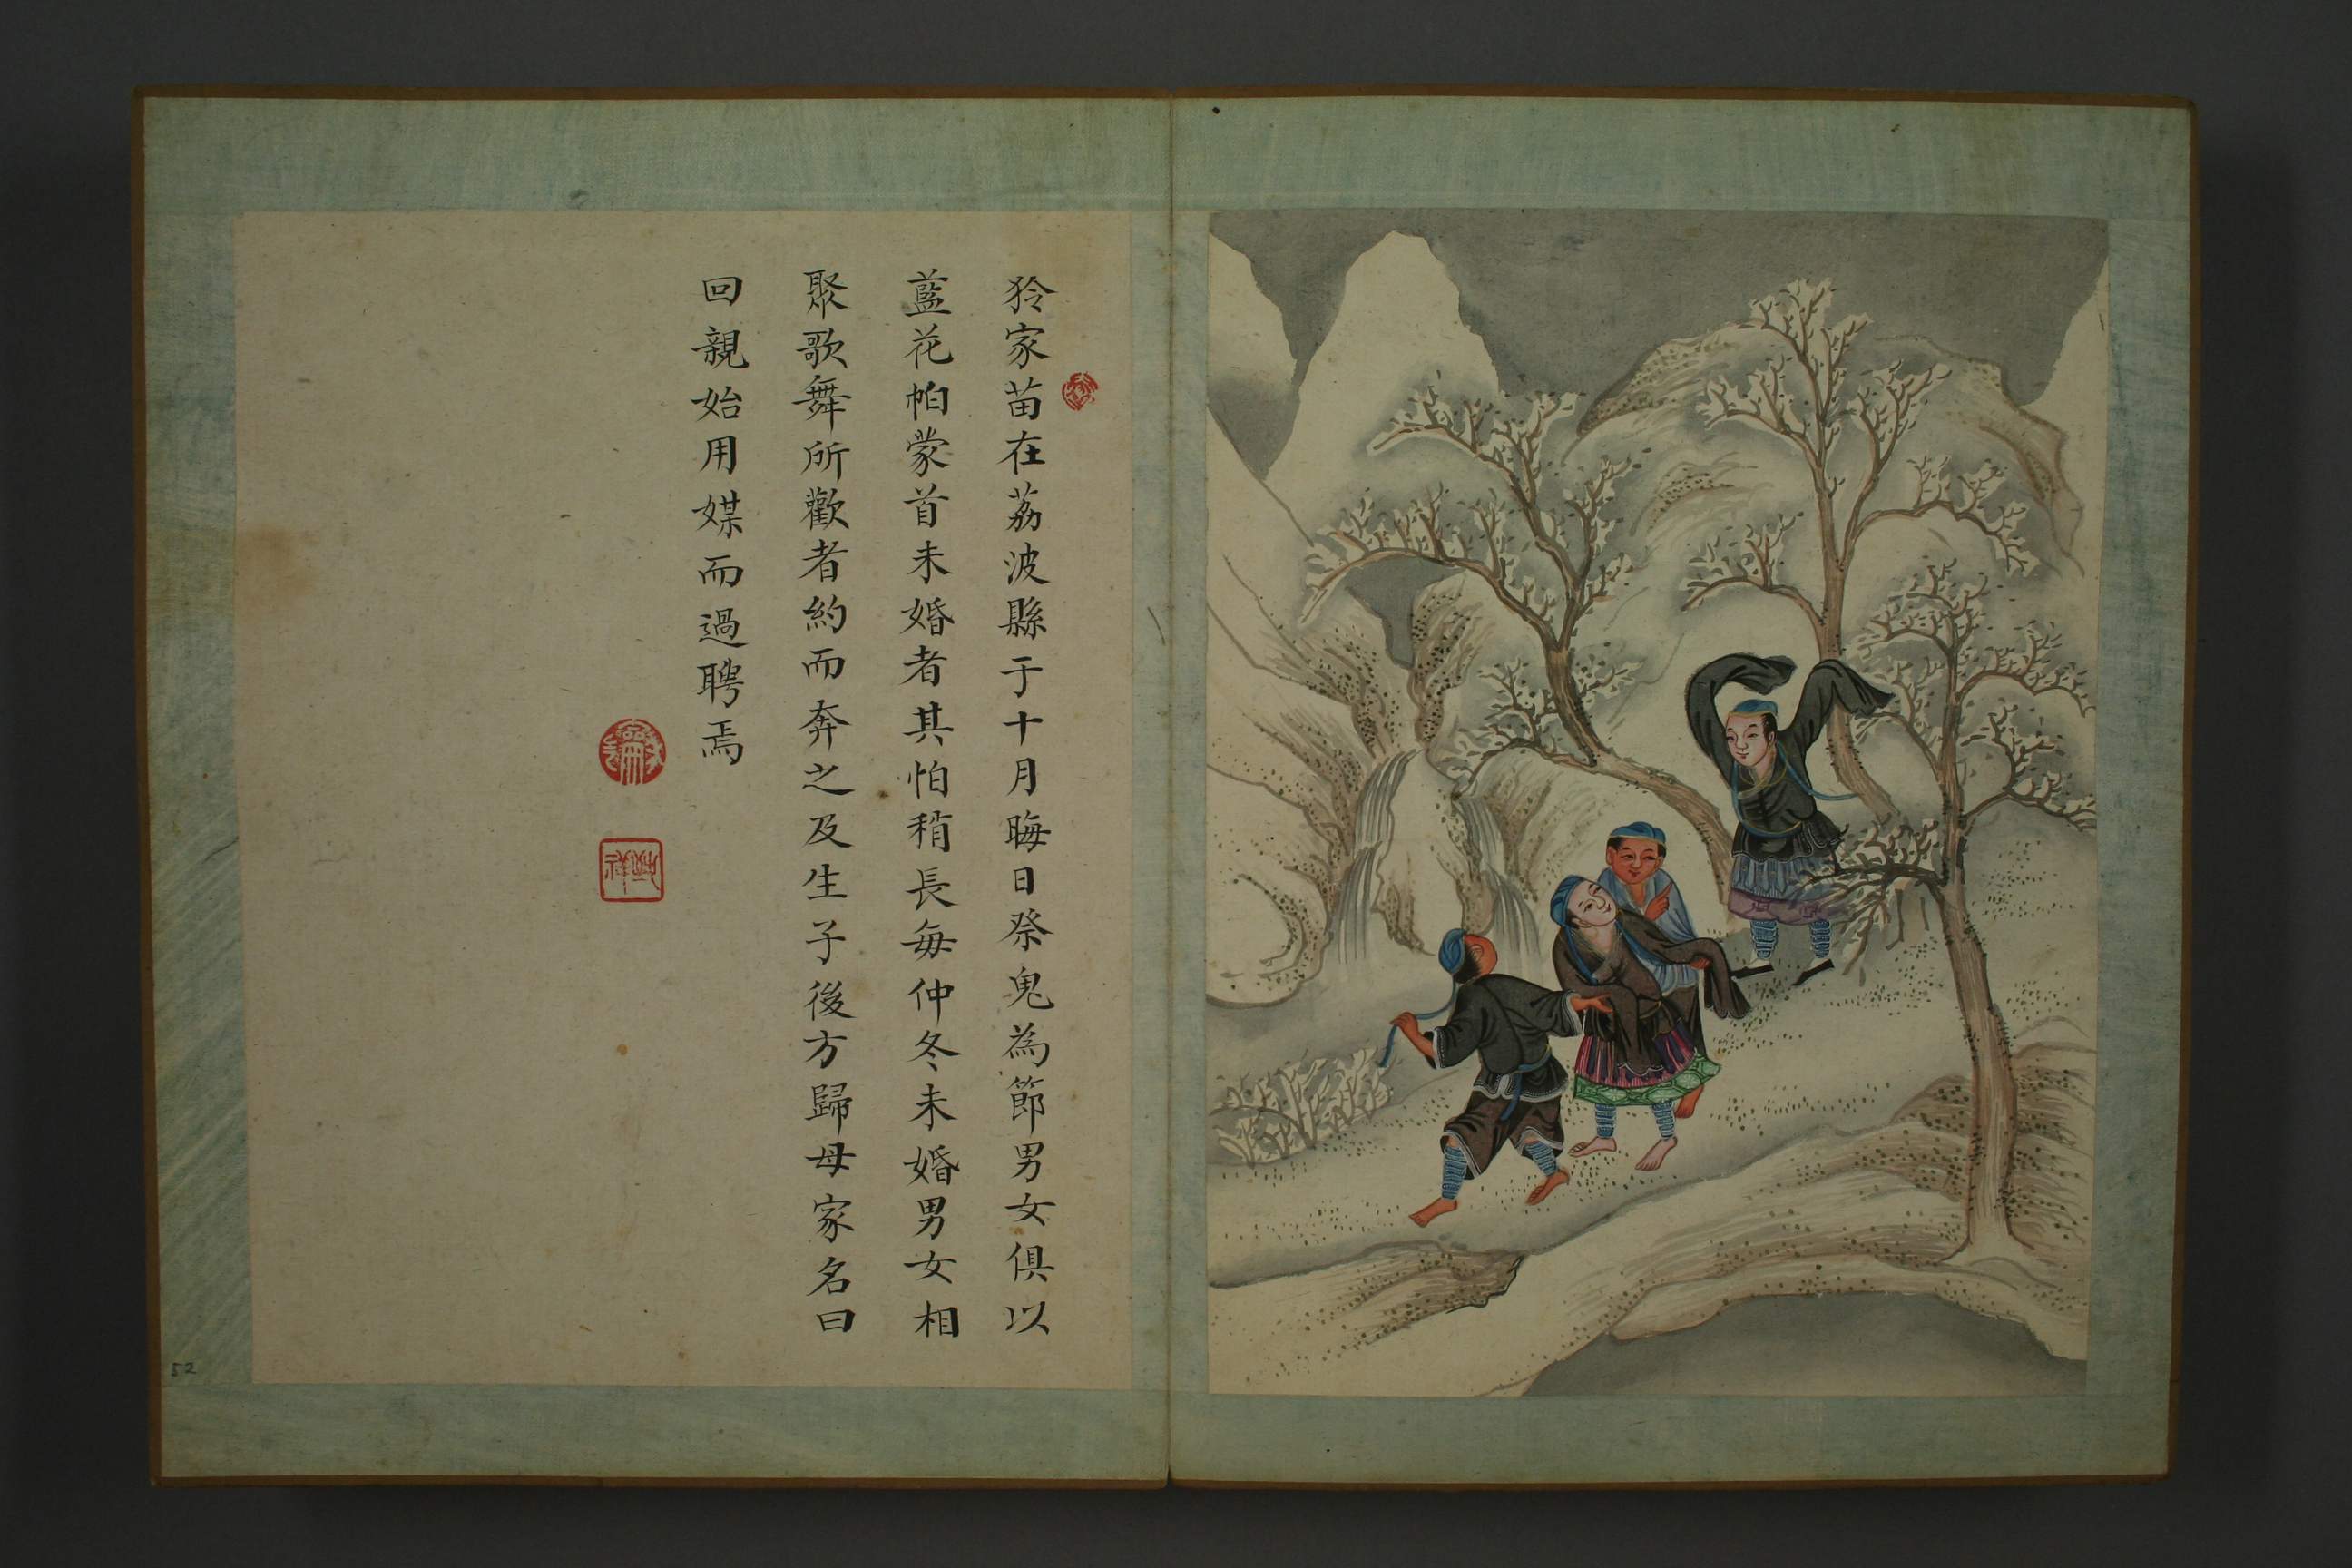 狑家苗在荔波縣于十月晦日祭鬼為節男女俱以
藍花帕蒙首未婚者其怕稍長每仲冬未婚男女相
聚歌舞所歡者約而奔之及生子後方歸母家名曰
回親始用媒而過聘焉
52